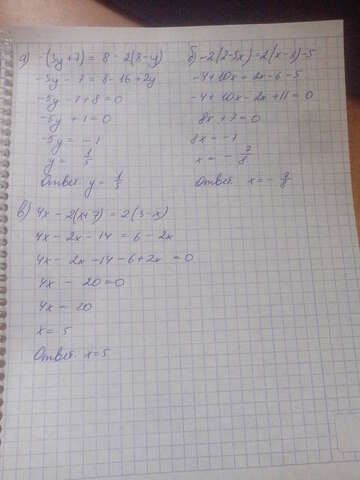 а) -(3y+7) = 8 - 2(8-y)
-3y - 7 = 8 - 16 + 2y
-5y - 7 + 8 = 0
-5y + 1 = 0
-5y = -1
y = 1/5
Ответ y = 1/5
б) -2(2-5x) = 2(x-3)-5
-4+10x = 2x-6-5
-4+10x-2x+11=0
8x+7=0
8x=-7
x = - 7/8
Ответ x = - 7/8
в) 4x - 2(x+7) = 2(3-x)
4x - 2x - 14 = 6 - 2x
4x - 2x - 14 - 6 + 2x = 0
4x - 20 = 0
4x = 20
x = 5
Ответ x=5